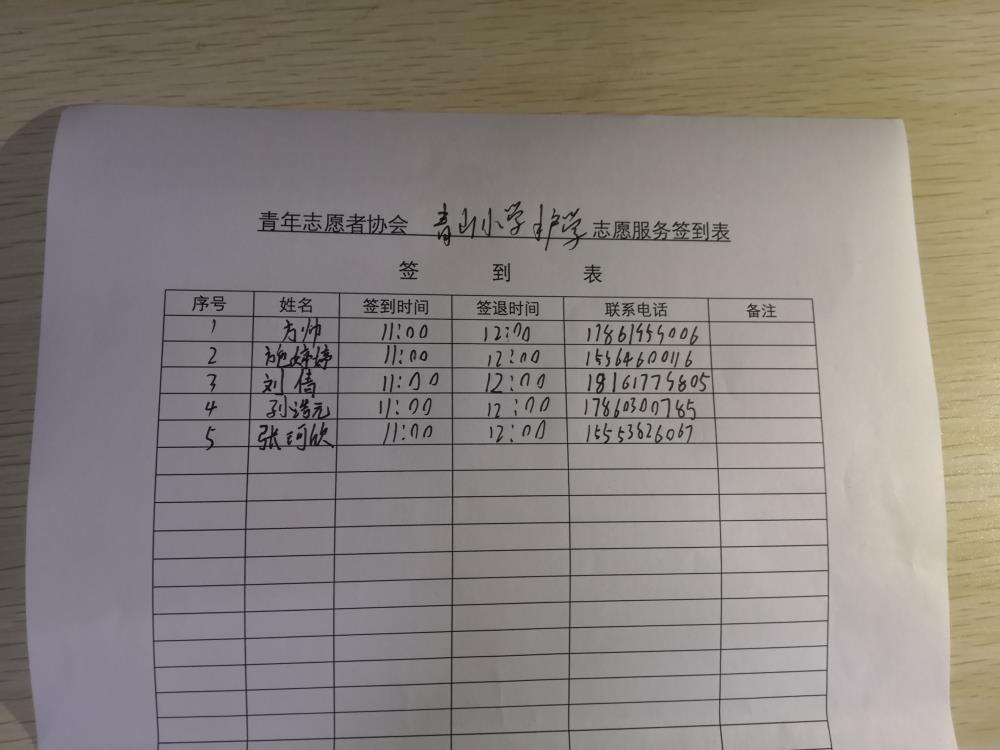 青年志愿者协会 青山小学护学 志愿服务签到表
签 到 表
序号 姓名 签到时间 签退时间 联系电话 备注
1 方帅 11:00 12:00 17861959006
2 施婷婷 11:00 12:00 15564600116
3 刘倩 11:00 12:00 18161779805
4 孙浩元 11:00 12:00 17860300785
5 张珂欣 11:00 12:00 15553826067